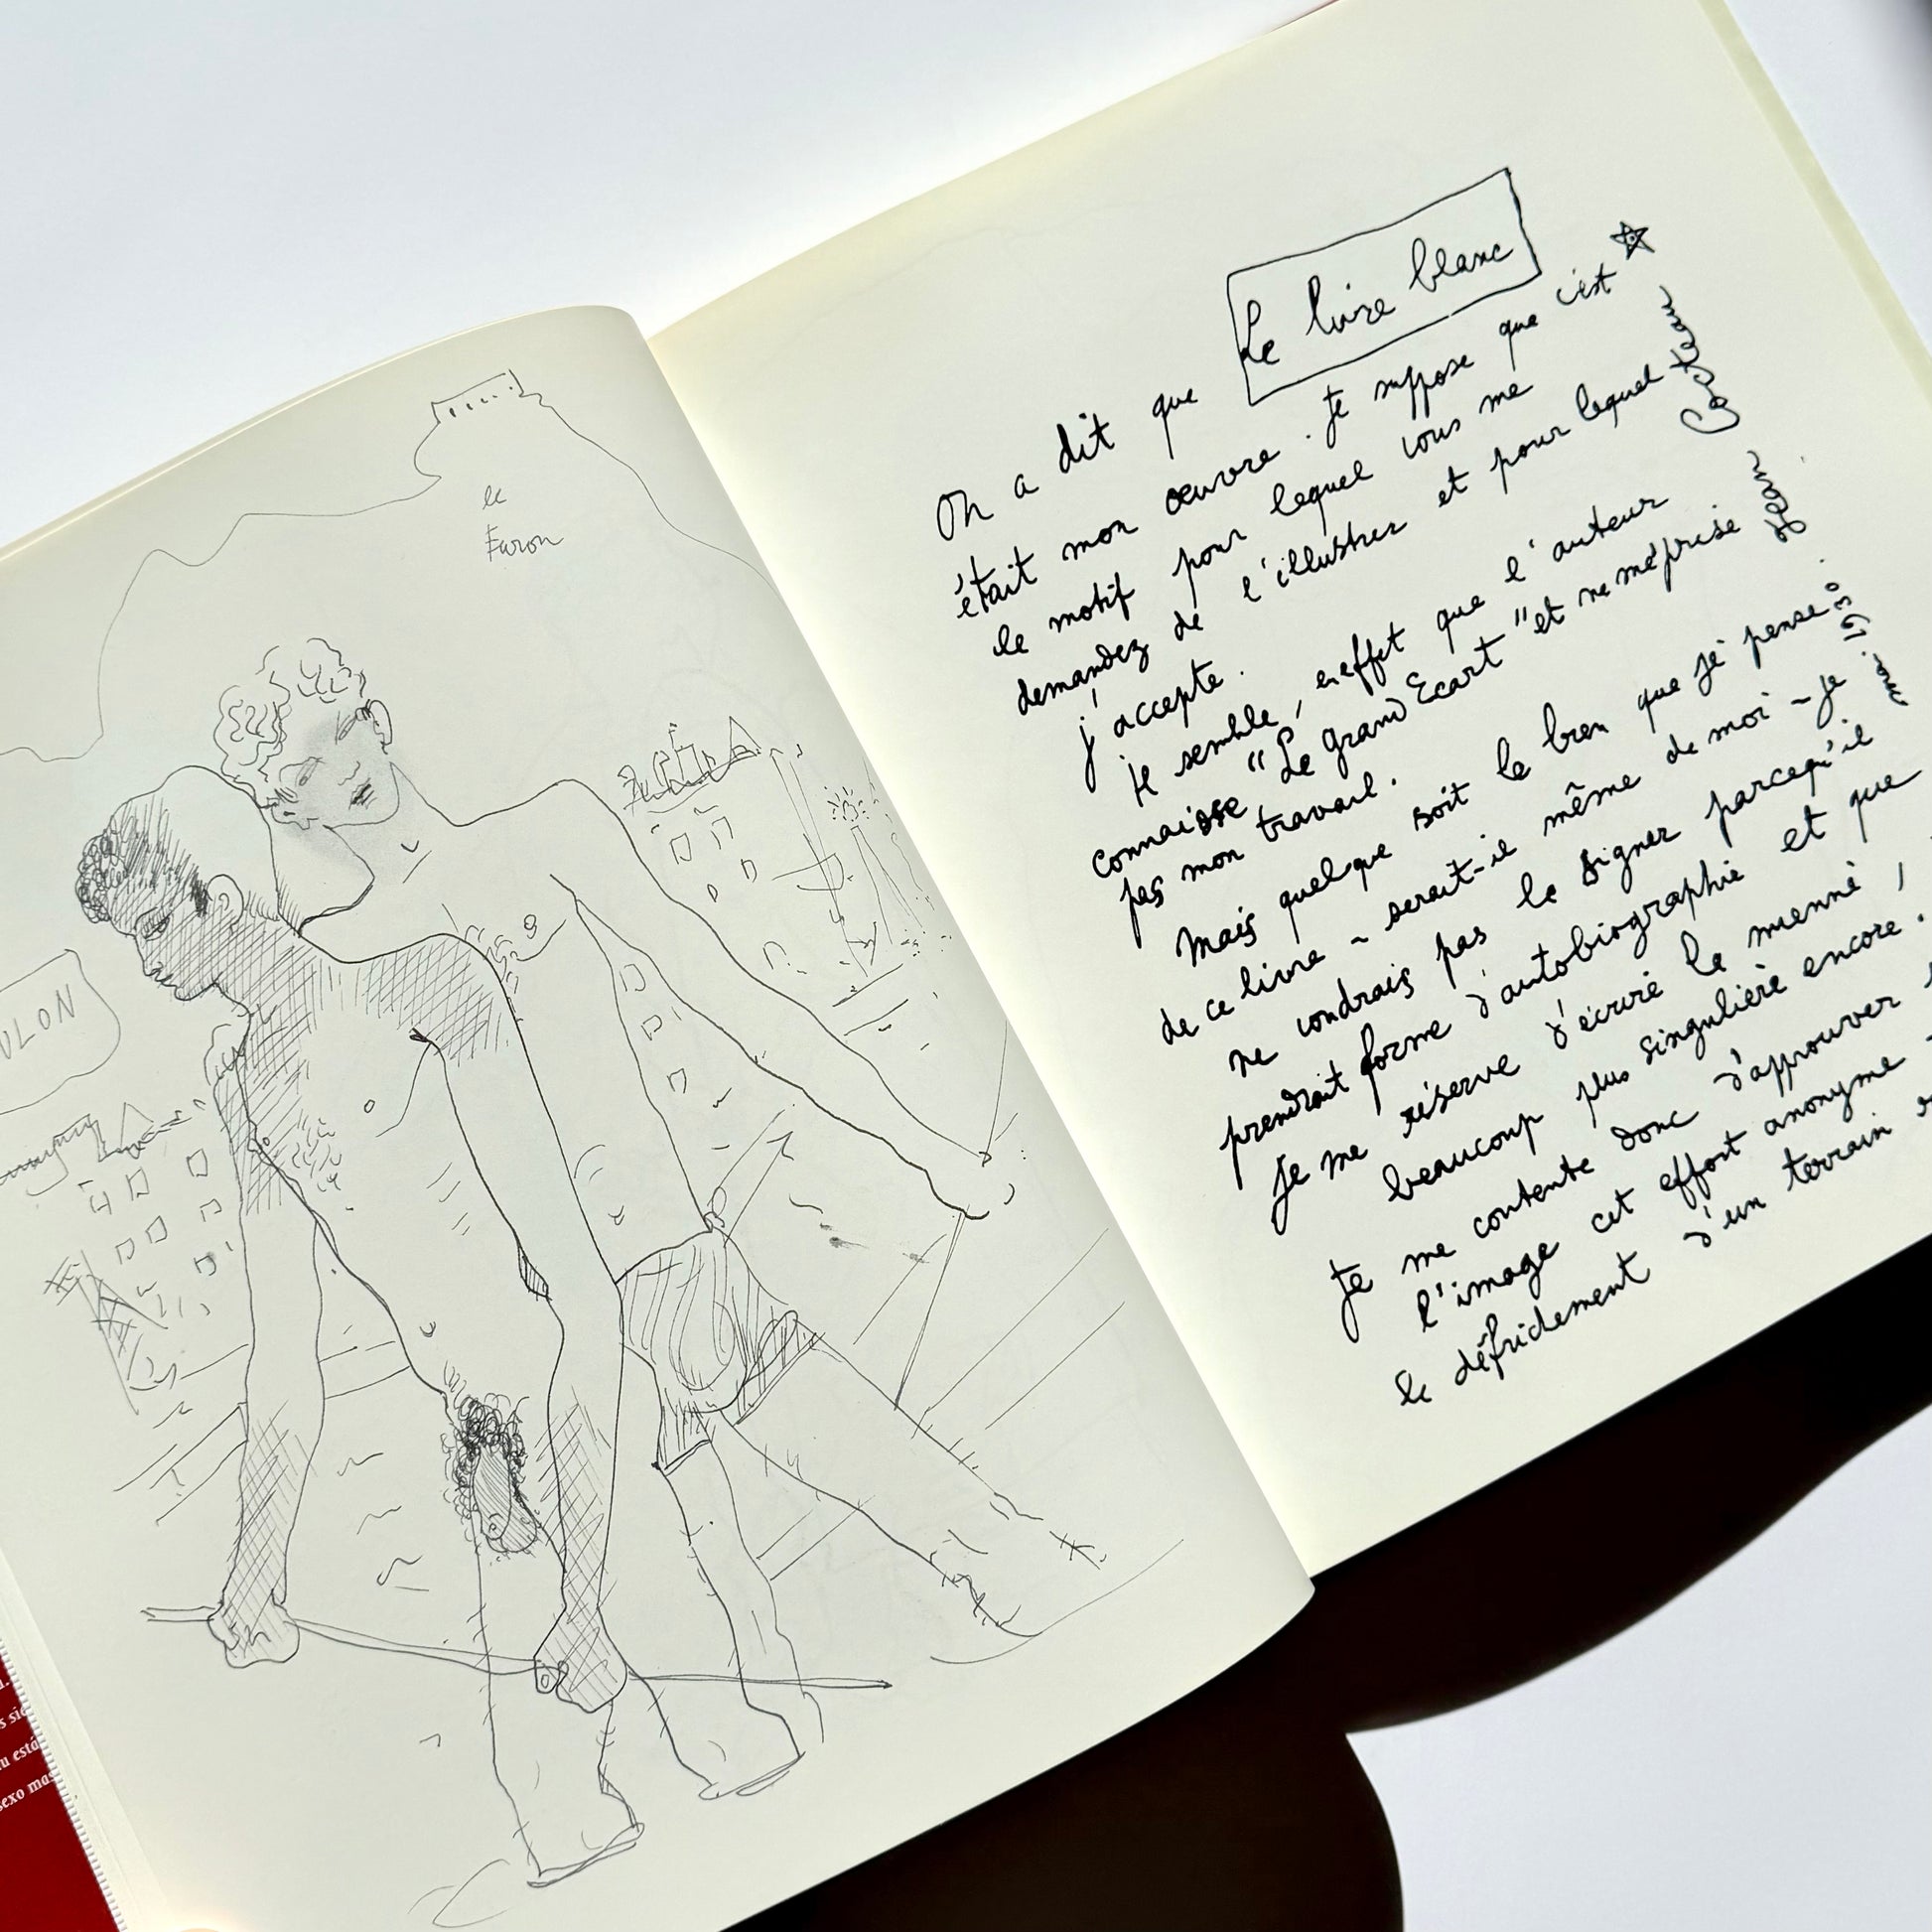 le
Faron
ULON
Le livre blanc
On a dit que
était mon œuvre. Je suppose que c'est
le motif pour lequel vous me
demandez de l'illustrer et pour lequel
j'accepte.
Il semble, en effet que l'auteur
connaisse "Le grand Ecart" et ne méprise
pas mon travail.
Mais quelque soit le bien que je pense
de ce livre - serait-il même de moi - je
ne voudrais pas le signer parcequ'il
prendrait forme d'autobiographie et que
je me réserve d'écrire la mienne,
beaucoup plus singulière encore.
Je me contente donc d'approuver
l'image cet effort anonyme
le défrichement d'un terrain
Jean Cocteau
mai. 1930.
s sie
u está
sexo mas